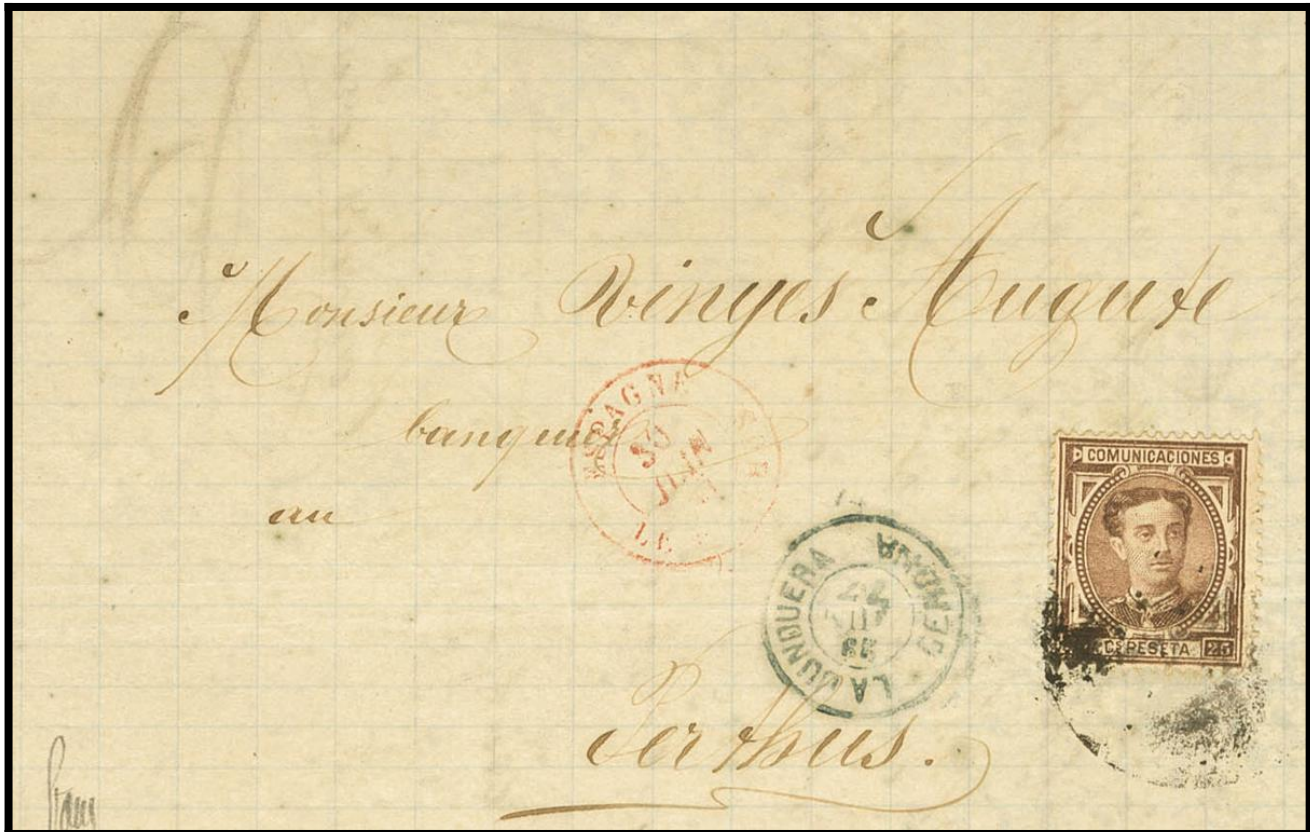 Monsieur Vinyes Augute
banquier
au
Perthus.
ESPAGNE
30
JUIN
LE
LA JUNQUERA
GERONA
JUN
COMUNICACIONES
Cs PESETA 25